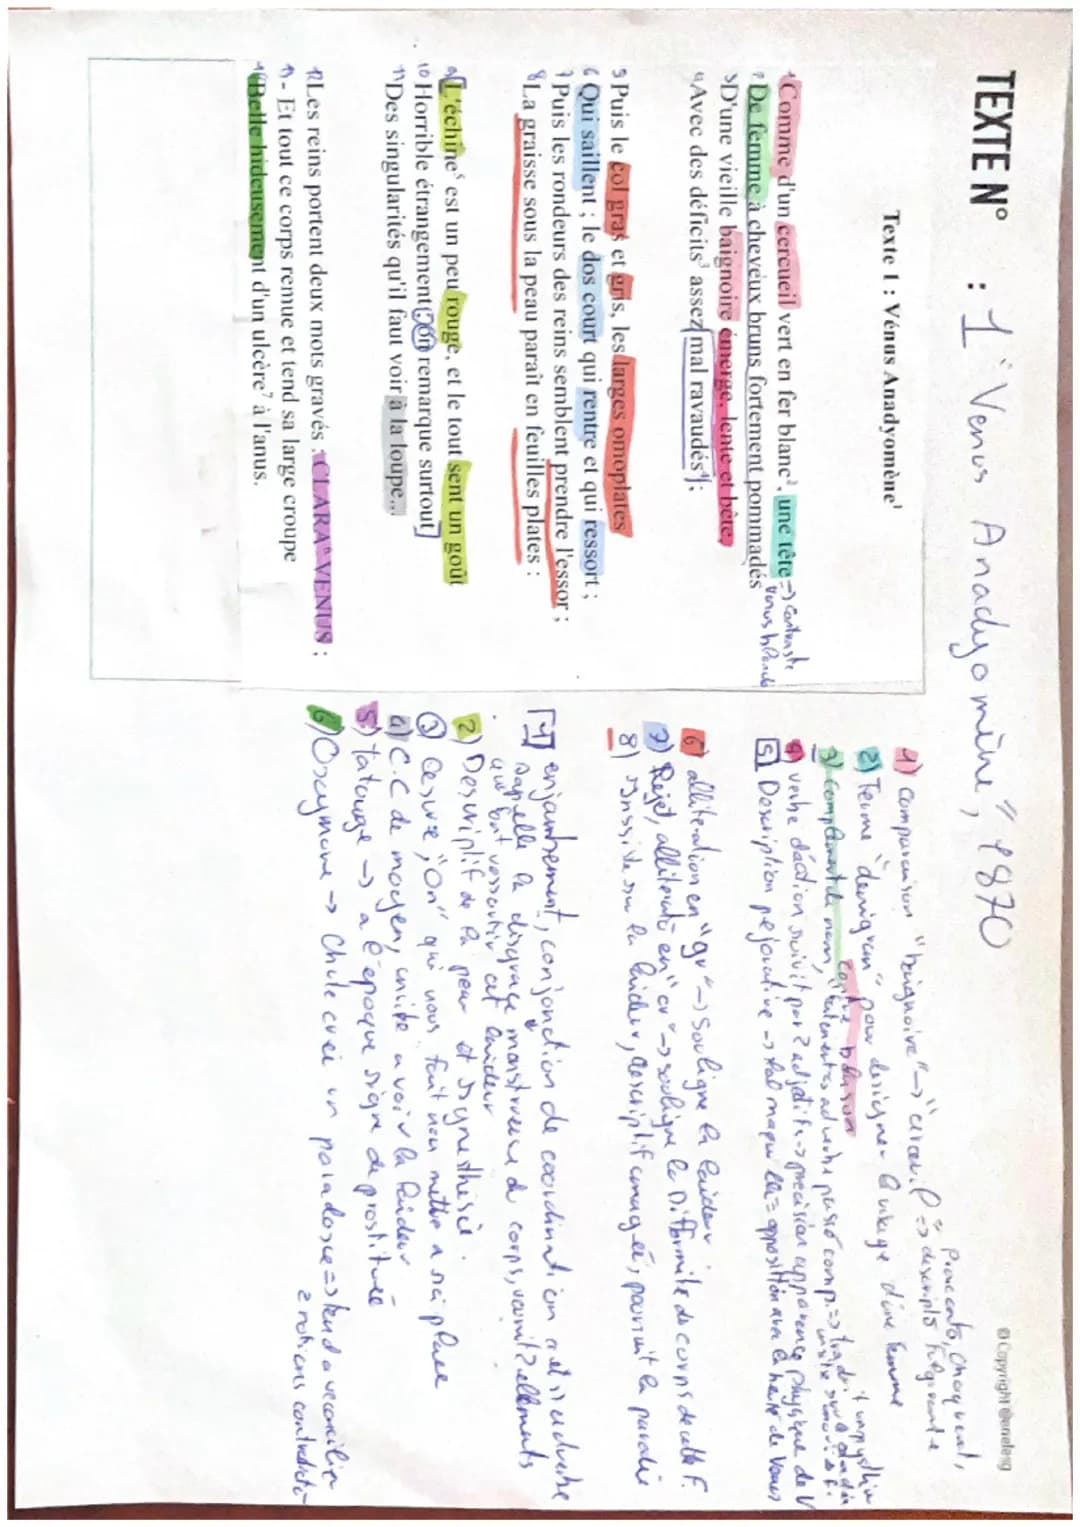 TEXTE N° : 1 : Venus Anadyomène, 1870
© Copyright
Texte 1 : Vénus Anadyomène¹
1 Comme d'un cercueil vert en fer blanc², une tête -> contraste
2 De femme à cheveux bruns fortement pommadés venus blonde
3 D'une vieille baignoire émerge, lente et bête,
4 Avec des déficits³ assez mal ravaudés⁴ ;
5 Puis le col gras et gris, les larges omoplates
6 Qui saillent ; le dos court qui rentre et qui ressort ;
7 Puis les rondeurs des reins semblent prendre l'essor ;
8 La graisse sous la peau paraît en feuilles plates :
9 L'échine⁵ est un peu rouge, et le tout sent un goût
10 Horrible étrangement ; on remarque surtout
11 Des singularités qu'il faut voir à la loupe...
12 Les reins portent deux mots gravés : CLARA⁶ VENUS :
13 - Et tout ce corps remue et tend sa large croupe
14 Belle hideusement d'un ulcère⁷ à l'anus.
1) comparaison "baignoire" -> "cercueil"
2) Terme pour designer visage d'une femme
3) Complement de nom, contre blason
4) verbe d'action suivit par 2 adjectifs -> precision apparence physique de V
5) Description pejorative -> mal maquillée = opposition avec la beauté de Venus
6) allitération en "gr" -> souligne la laideur
7) Rejet, allitération en "r" -> souligne la Difformité du corps de cette F.
8) Insiste sur la laideur, descriptif poursuit la parodie
1) enjambement, conjonction de coordination et adverbe
rappelle la disgrace monstrueuse du corps, 2 elements
qui font ressortir cet laideur
2) Descriptif de la peau et synesthésie.
3) Cesure, "on" qui nous fait nous mettre a sa place
4) C.C de moyen, invite a voir la laideur
5) tatouage -> a l'époque signe de prostituée
6) Oxymore -> Chute créé un paradoxe => tend a reconcilier
2 notions